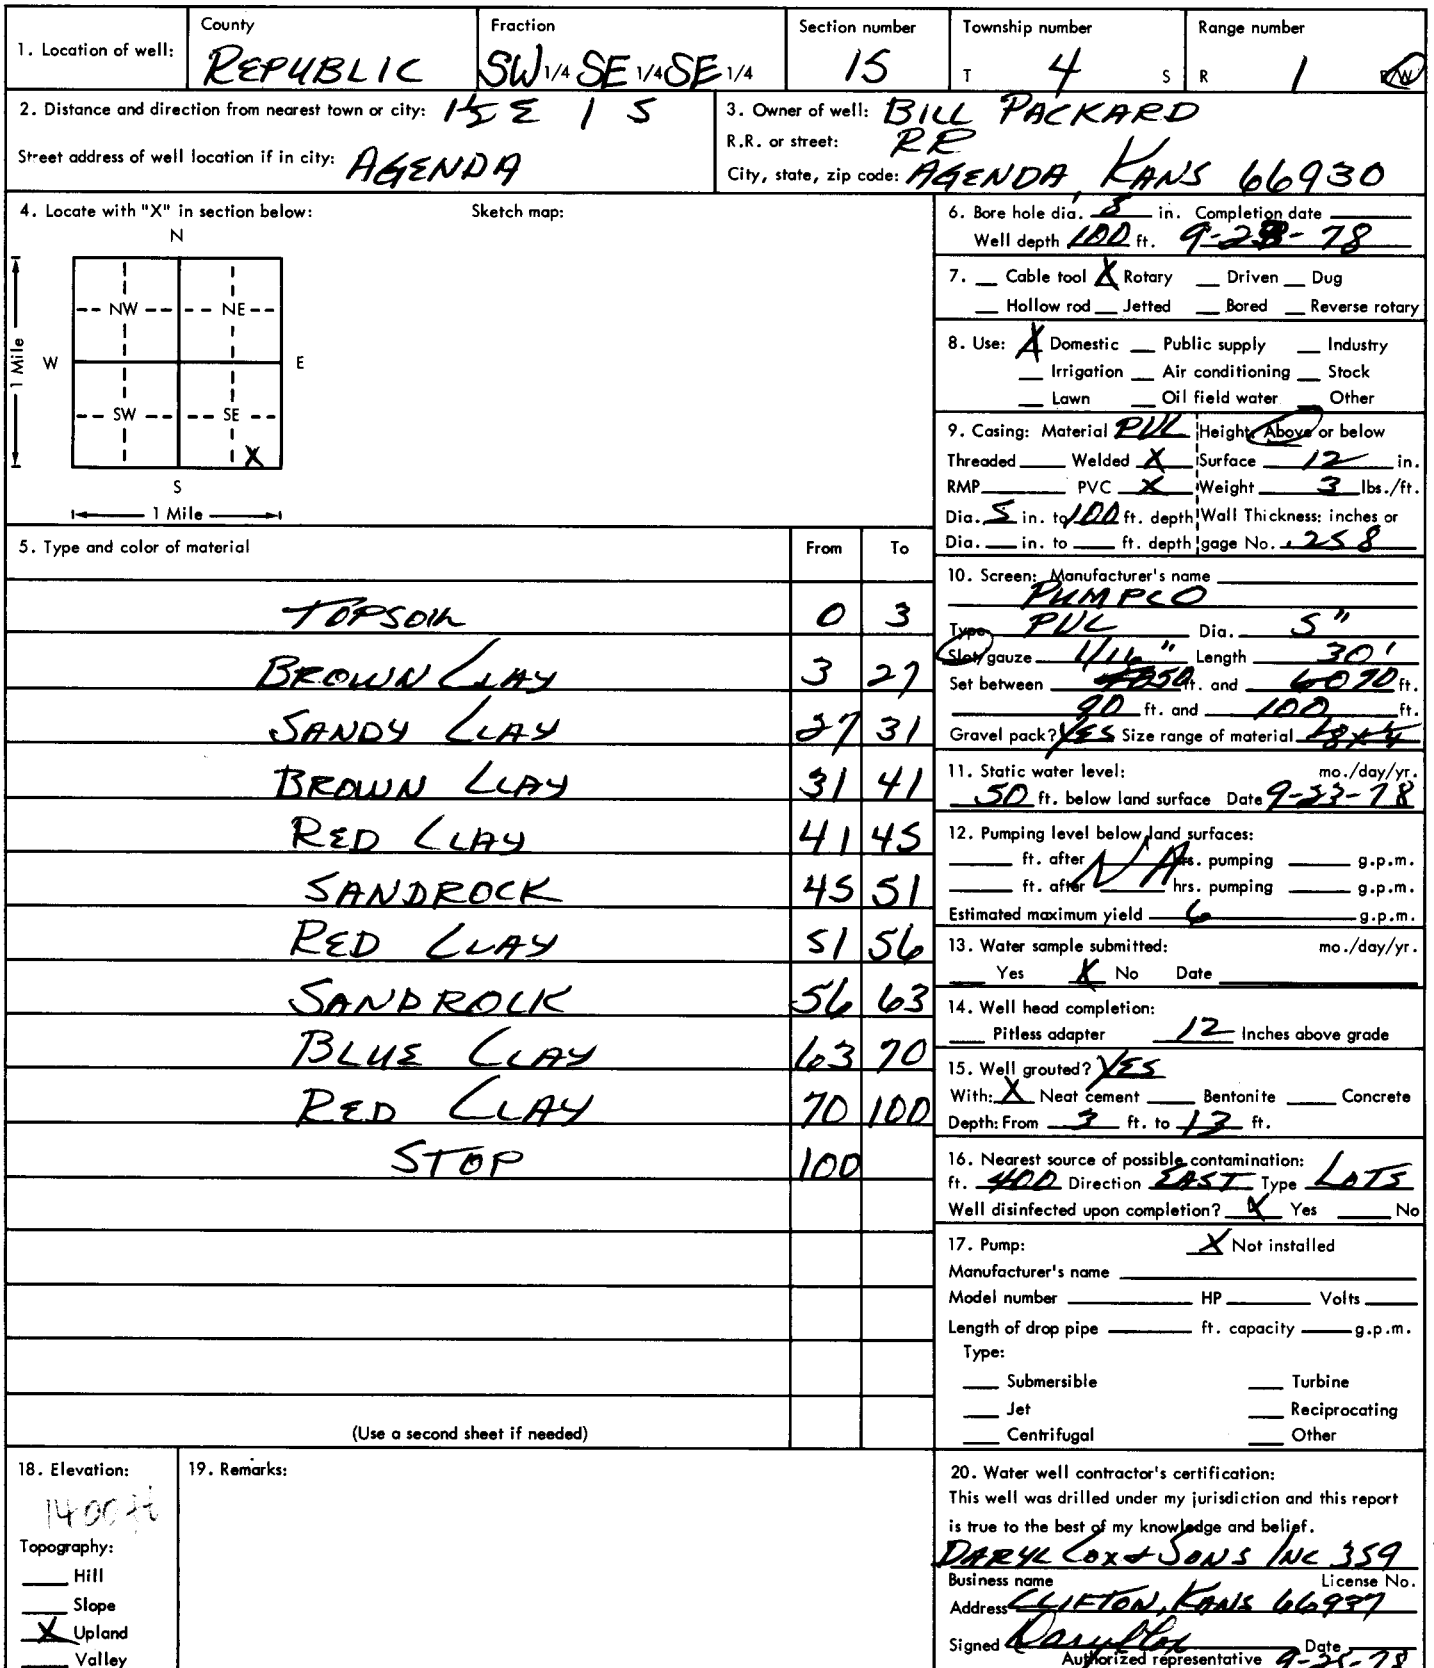 1. Location of well: County REPUBLIC Fraction SW 1/4 SE 1/4 SE 1/4 Section number 15 Township number T 4 S Range number R 1 E/W
2. Distance and direction from nearest town or city: 1½ E 1 S
Street address of well location if in city: AGENDA
3. Owner of well: BILL PACKARD
R.R. or street: RR
City, state, zip code: AGENDA, KANS 66930
4. Locate with "X" in section below: Sketch map:
N
NW NE
W E
1 Mile
SW SE
X
S
1 Mile
5. Type and color of material From To
TOPSOIL 0 3
BROWN CLAY 3 27
SANDY CLAY 27 31
BROWN CLAY 31 41
RED CLAY 41 45
SANDROCK 45 51
RED CLAY 51 56
SANDROCK 56 63
BLUE CLAY 63 70
RED CLAY 70 100
STOP 100
(Use a second sheet if needed)
6. Bore hole dia. in. Completion date
Well depth 100 ft. 9-23-78
7. Cable tool X Rotary Driven Dug
Hollow rod Jetted Bored Reverse rotary
8. Use: X Domestic Public supply Industry
Irrigation Air conditioning Stock
Lawn Oil field water Other
9. Casing: Material PVC Height: Above or below
Threaded Welded X Surface 12 in.
RMP PVC X Weight 3 lbs./ft.
Dia. 5 in. to 100 ft. depth Wall Thickness: inches or
Dia. in. to ft. depth gage No. .258
10. Screen: Manufacturer's name
PUMPCO
Type PVC Dia. 5"
Slot/gauze 1/16" Length 30'
Set between 50 ft. and 70 ft.
90 ft. and 100 ft.
Gravel pack? YES Size range of material
11. Static water level: mo./day/yr.
50 ft. below land surface Date 9-23-78
12. Pumping level below land surfaces:
ft. after NA hrs. pumping g.p.m.
ft. after hrs. pumping g.p.m.
Estimated maximum yield 6 g.p.m.
13. Water sample submitted: mo./day/yr.
Yes X No Date
14. Well head completion:
Pitless adapter 12 Inches above grade
15. Well grouted? YES
With: X Neat cement Bentonite Concrete
Depth: From 3 ft. to 13 ft.
16. Nearest source of possible contamination:
ft. 400 Direction EAST Type LOTS
Well disinfected upon completion? X Yes No
17. Pump: X Not installed
Manufacturer's name
Model number HP Volts
Length of drop pipe ft. capacity g.p.m.
Type:
Submersible Turbine
Jet Reciprocating
Centrifugal Other
18. Elevation:
1400 ft
Topography:
Hill
Slope
X Upland
Valley
19. Remarks:
20. Water well contractor's certification:
This well was drilled under my jurisdiction and this report
is true to the best of my knowledge and belief.
DARYL COX & SONS INC 359
Business name License No.
Address CLIFTON, KANS 66937
Signed Daryl Cox Date
Authorized representative 9-25-78